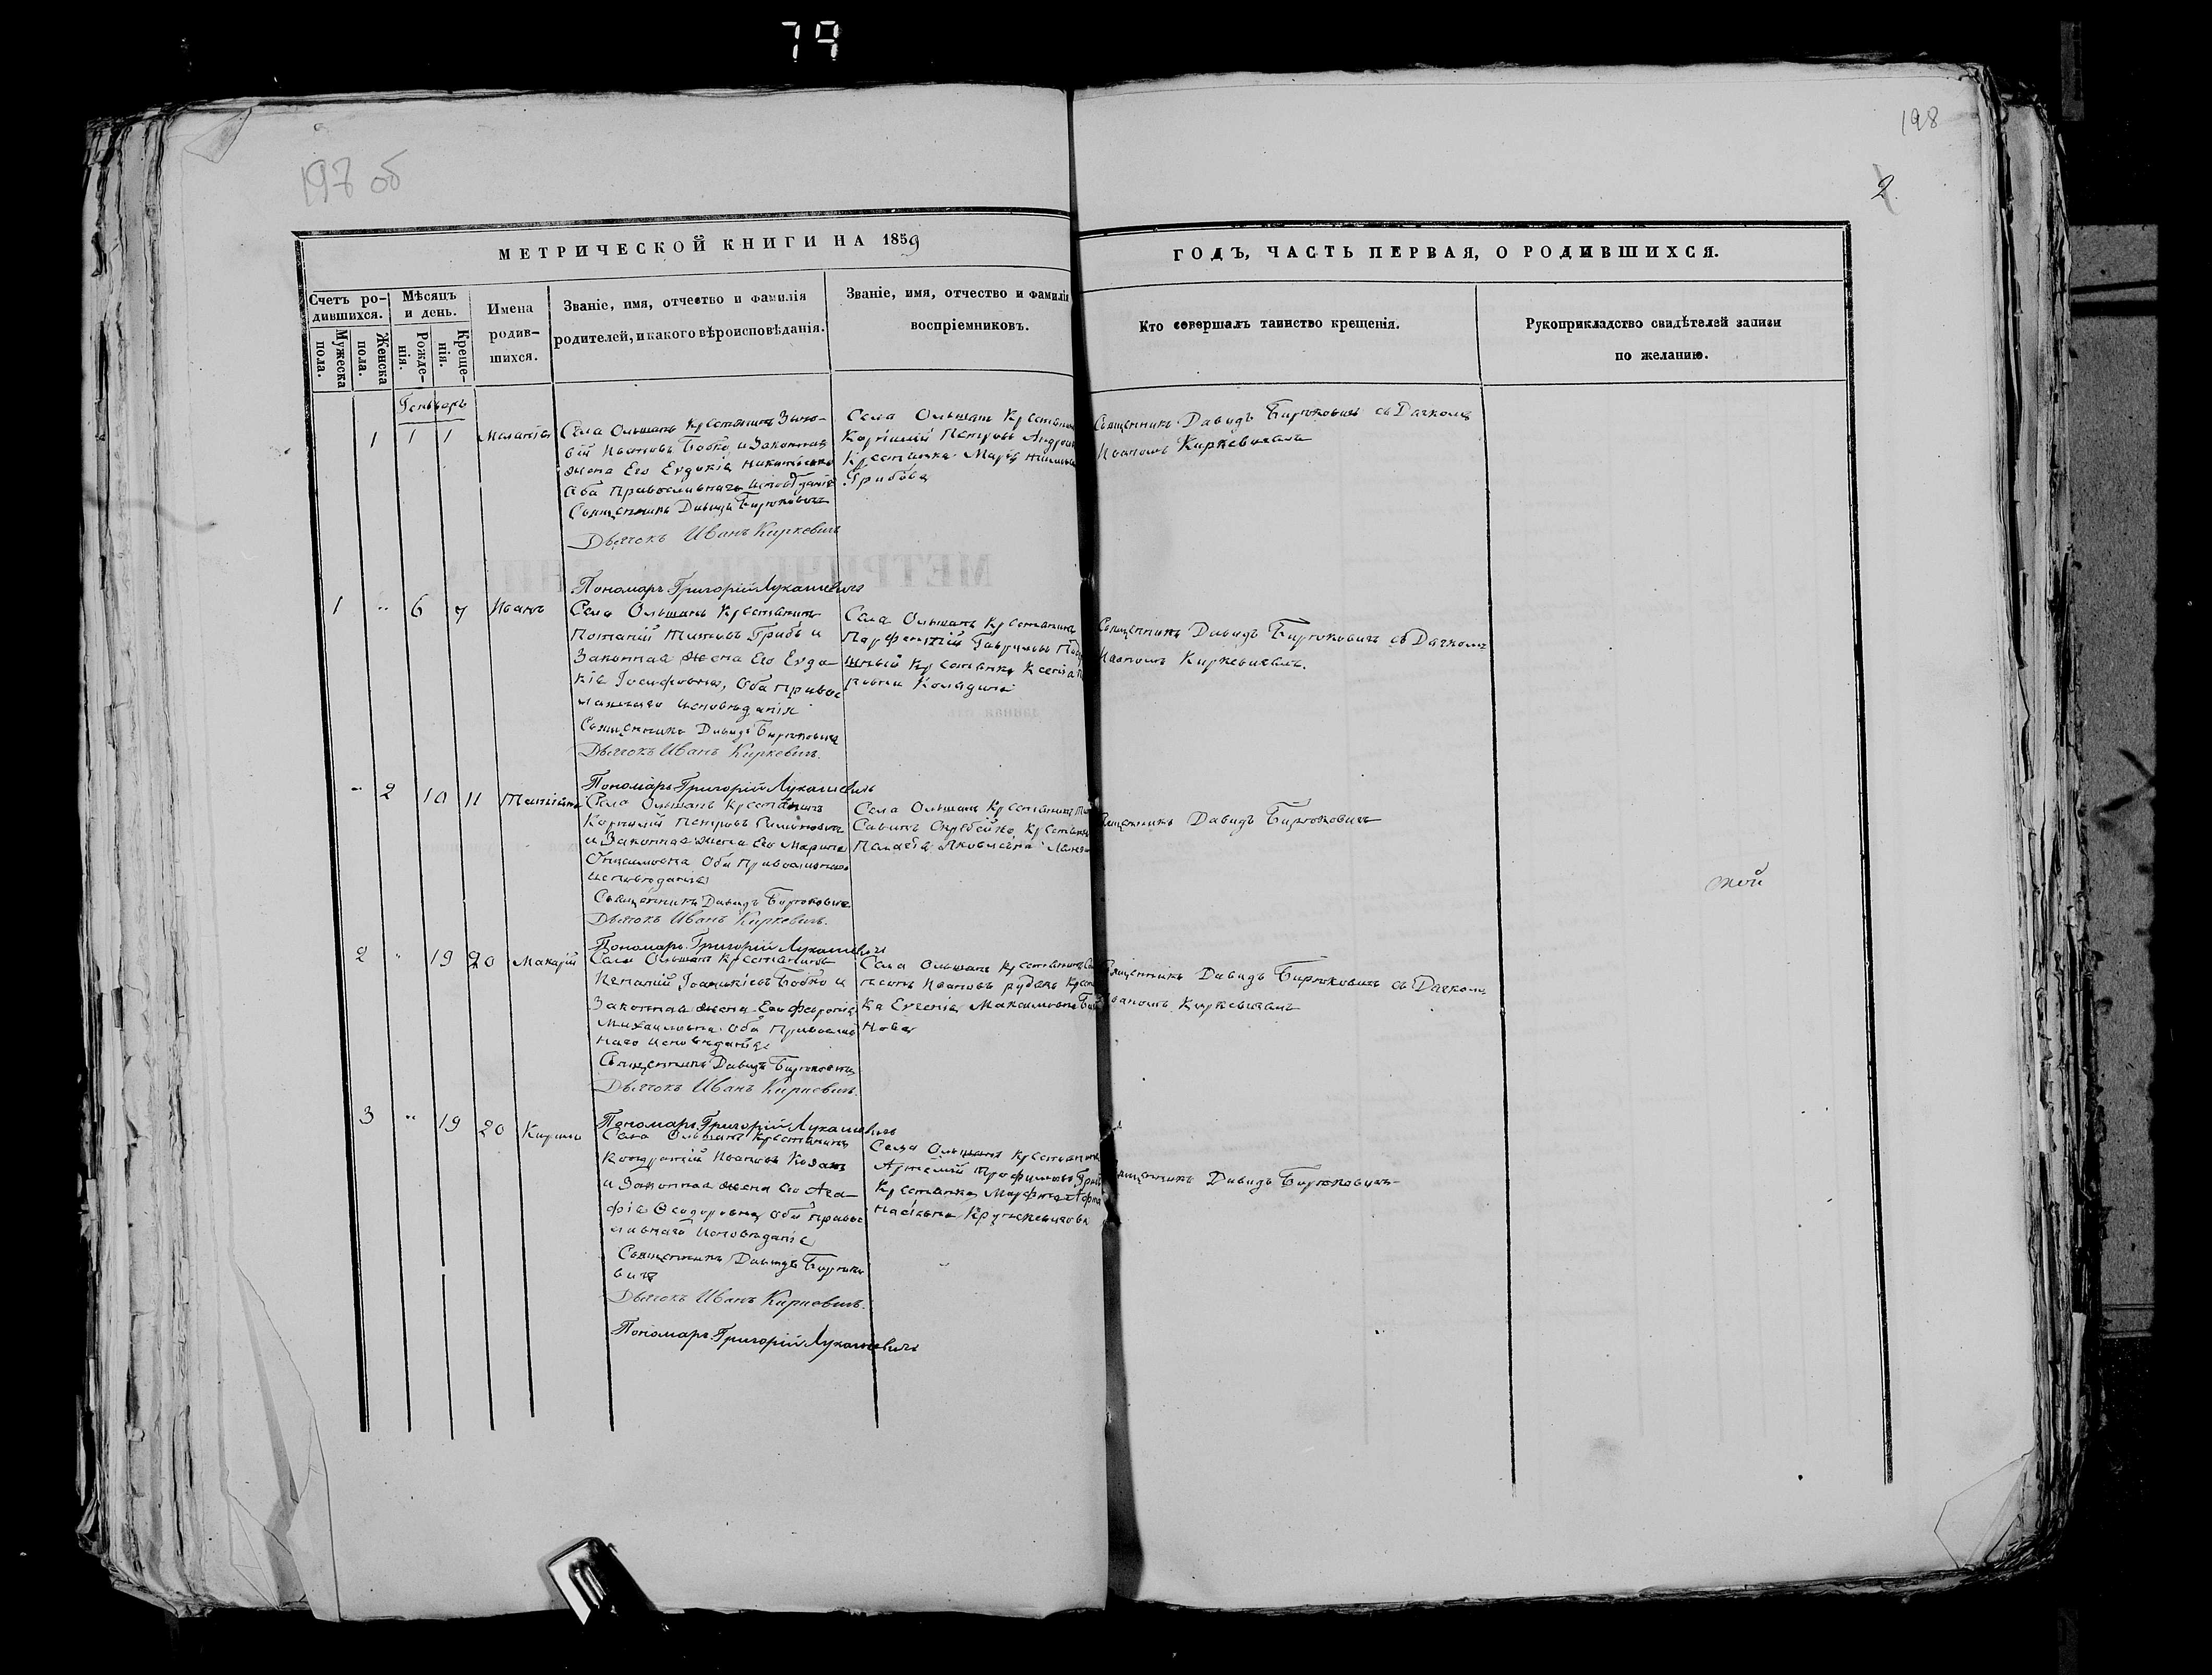 79
197 об
198
2
МЕТРИЧЕСКОЙ КНИГИ НА 1859
ГОДЪ, ЧАСТЬ ПЕРВАЯ, О РОДИВШИХСЯ.
Счетъ ро-
дившихся.
Мужеска
пола.
Женска
пола.
Мѣсяцъ
и день.
Рожде-
нія.
Креще-
нія.
Имена
родив-
шихся.
Званіе, имя, отчество и фамилія
родителей, и какого вѣроисповѣданія.
Званіе, имя, отчество и фамилія
воспріемниковъ.
Кто совершалъ таинство крещенія.
Рукоприкладство свидѣтелей записи
по желанію.
Генварь
1 1 1 Меланія
Села Ольшанъ Крестьянинъ Зино-
вій Ивановъ Бобко и Законная
жена Его Евдокія
Оба Православнаго Исповѣданія
Священникъ Давидъ Бирюковичъ
Дьячокъ Иванъ Киркевичъ
Пономарь Григорій Лукашевичъ
Села Ольшанъ Крестьянинъ
Корнилій Петровъ
Крестьянка Марія
Грибова
Священникъ Давидъ Бирюковичъ съ Дячкомъ
Иваномъ Киркевичемъ
1 " 6 7 Иванъ
Села Ольшанъ Крестьянинъ
Потапій Титовъ Грибъ и
Законная жена Его Евдо-
кія Іосифовна, Оба Правос
лавнаго Исповѣданія
Священникъ Давидъ Бирюковичъ
Дьячокъ Иванъ Киркевичъ.
Пономарь Григорій Лукашевичъ
Села Ольшанъ Крестьянинъ
Парфентій Гавриловъ
Крестьянка Ксенія
Священникъ Давидъ Бирюковичъ съ Дячкомъ
Иваномъ Киркевичемъ.
" 2 10 11 Татіана
Села Ольшанъ Крестьянинъ
Корнилій Петровъ
и Законная жена Его Марина
Онисимовна Оба Православнаго
Исповѣданія
Священникъ Давидъ Бирюковичъ
Дьячокъ Иванъ Киркевичъ.
Пономарь Григорій Лукашевичъ
Села Ольшанъ Крестьянинъ
Савинъ Крестьянка
Палагія Яковлевна
Священникъ Давидъ Бирюковичъ
2 " 19 20 Макарій
Села Ольшанъ Крестьянинъ
Ипатій Іоанникіевъ Бобко и
Законная жена Его Февронія
Михайловна Оба Православ
наго Исповѣданія
Священникъ Давидъ Бирюковичъ
Дьячокъ Иванъ Киркевичъ.
Пономарь Григорій Лукашевичъ
Села Ольшанъ Крестьянинъ
Ивановъ
ка Евгенія Максимовна
нова
Священникъ Давидъ Бирюковичъ съ Дячкомъ
Иваномъ Киркевичемъ
3 " 19 20 Кирилъ
Села Ольшанъ Крестьянинъ
Кондратій Ивановъ Козакъ
и Законная жена Его Ага-
фія Ѳеодоровна Оба Правос
лавнаго Исповѣданія
Священникъ Давидъ Бирюко
вичъ
Дьячокъ Иванъ Киркевичъ.
Пономарь Григорій Лукашевичъ
Села Ольшанъ Крестьянинъ
Артемій Трофимовъ
Крестьянка Марфа Афа
насіевна
Священникъ Давидъ Бирюковичъ